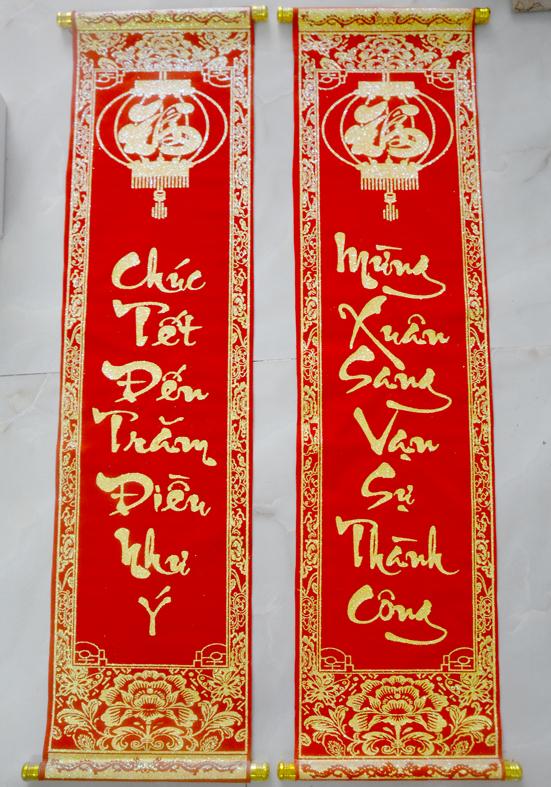 福
Chúc
Tết
Đến
Trăm
Điều
Như
Ý
福
Mừng
Xuân
Sang
Vạn
Sự
Thành
Công